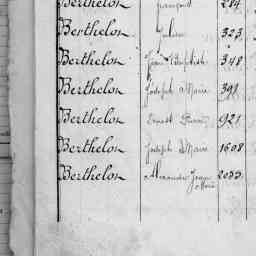 Berthelon François 284.
Berthelon Julien 323.
Berthelon Jean Baptiste 348.
Berthelon Joseph Marie 391.
Berthelon Ernest 921.
Berthelon Joseph Marie 1608
Berthelon Alexandre Jean
Marie 2033.